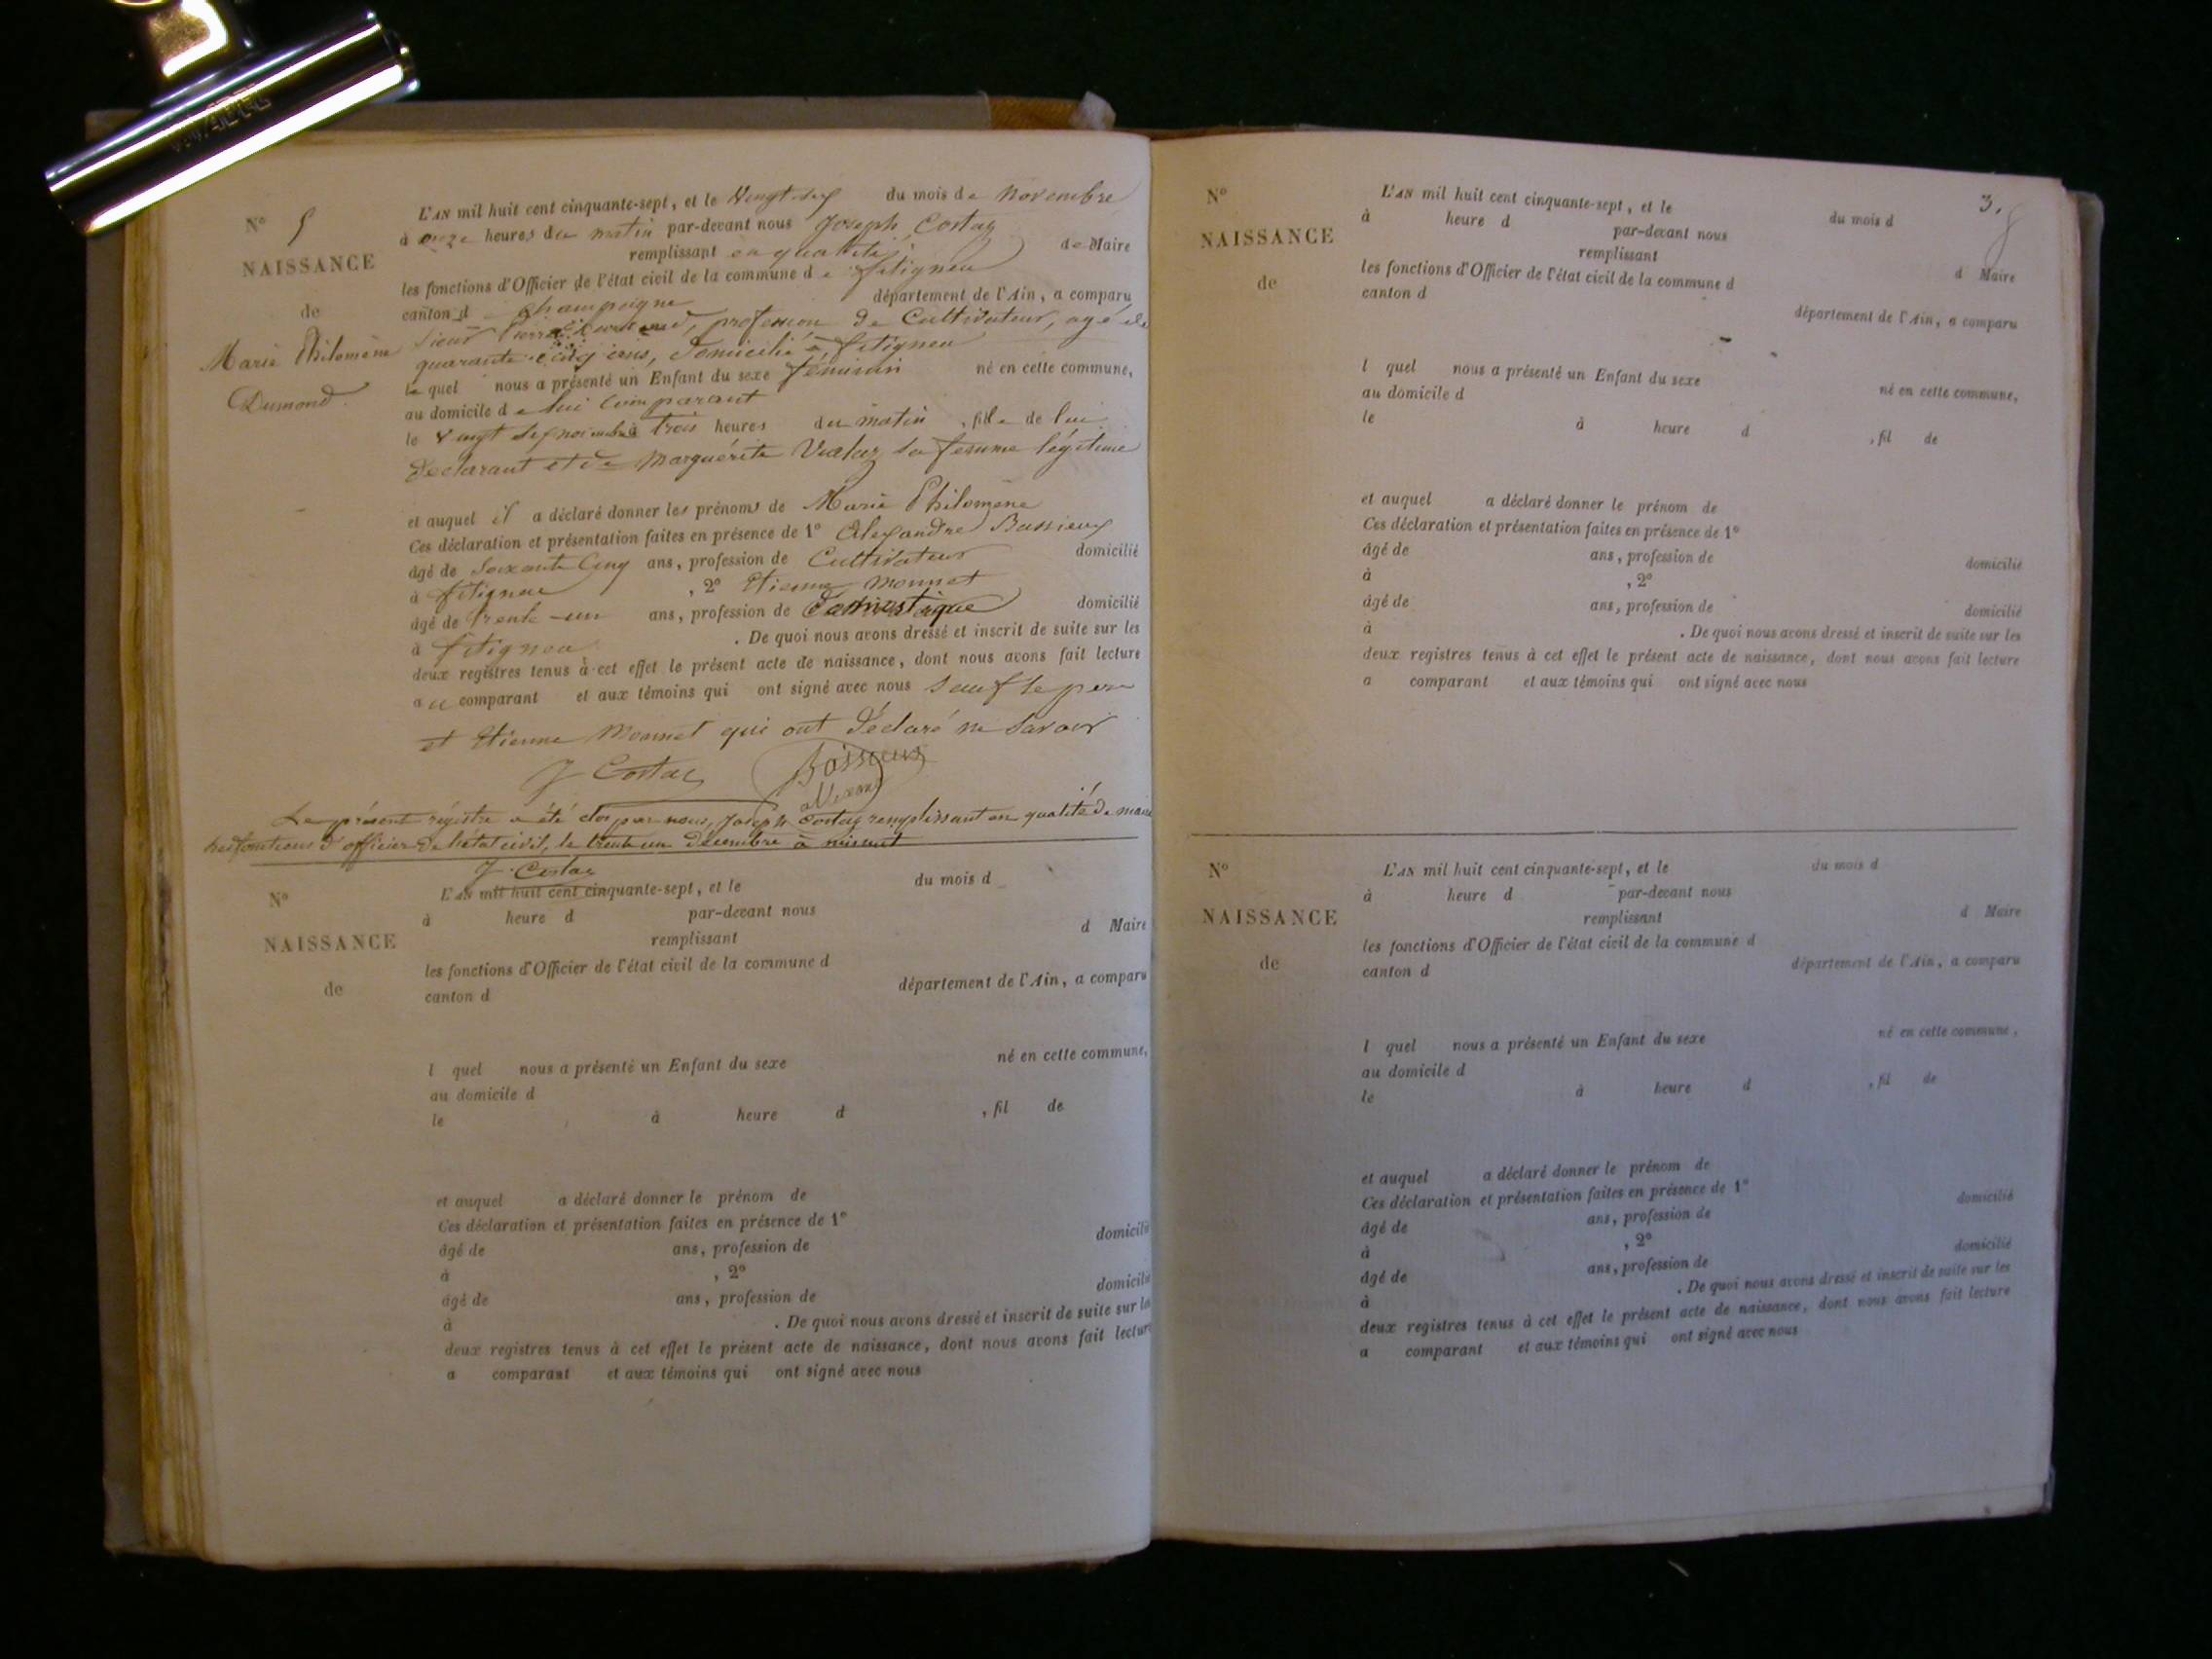 N° 5
NAISSANCE
de
Marie Philomène
Dumond.
L'AN mil huit cent cinquante-sept, et le vingt-six du mois de novembre
à onze heures du matin par-devant nous Joseph Costaz
remplissant en qualité de Maire
les fonctions d'Officier de l'état civil de la commune de fitigneu
canton d champagne département de l'Ain, a comparu
Sieur Pierre Dumond, profession de Cultivateur, agé de
quarante-cinq ans, domicilié à fitigneu
le quel nous a présenté un Enfant du sexe féminin né en cette commune,
au domicile de lui comparant
le vingt six novembre à trois heures du matin, fille de lui
déclarant et de Marguérite Vualuz sa femme légitime
et auquel il a déclaré donner les prénoms de Marie Philomène
Ces déclaration et présentation faites en présence de 1° Alexandre Bassieux
âgé de soixante Cinq ans, profession de Cultivateur domicilié
à fitigneu, 2° Etienne Monnet
âgé de trente-un ans, profession de domestique domicilié
à fitigneu. De quoi nous avons dressé et inscrit de suite sur les
deux registres tenus à cet effet le présent acte de naissance, dont nous avons fait lecture
au comparant et aux témoins qui ont signé avec nous sauf le père
et Etienne Monnet qui ont déclaré ne savoir
J Costaz Bassieux
Le présent régistre a été clos par nous, Joseph Costaz remplissant en qualité de maire
les fonctions d'officier de l'état civil, le trente un décembre à minuit
J. Costaz
N°
NAISSANCE
de
L'AN mil huit cent cinquante-sept, et le du mois d
à heure d par-devant nous
remplissant d Maire
les fonctions d'Officier de l'état civil de la commune d
canton d département de l'Ain, a comparu
l quel nous a présenté un Enfant du sexe né en cette commune,
au domicile d
le à heure d , fil de
et auquel a déclaré donner le prénom de
Ces déclaration et présentation faites en présence de 1°
âgé de ans, profession de domicilié
à , 2°
âgé de ans, profession de domicilié
à . De quoi nous avons dressé et inscrit de suite sur les
deux registres tenus à cet effet le présent acte de naissance, dont nous avons fait lecture
a comparant et aux témoins qui ont signé avec nous
3.
N°
NAISSANCE
de
L'AN mil huit cent cinquante-sept, et le du mois d
à heure d par-devant nous
remplissant d Maire
les fonctions d'Officier de l'état civil de la commune d
canton d département de l'Ain, a comparu
l quel nous a présenté un Enfant du sexe né en cette commune,
au domicile d
le à heure d , fil de
et auquel a déclaré donner le prénom de
Ces déclaration et présentation faites en présence de 1°
âgé de ans, profession de domicilié
à , 2°
âgé de ans, profession de domicilié
à . De quoi nous avons dressé et inscrit de suite sur les
deux registres tenus à cet effet le présent acte de naissance, dont nous avons fait lecture
a comparant et aux témoins qui ont signé avec nous
N°
NAISSANCE
de
L'AN mil huit cent cinquante-sept, et le du mois d
à heure d par-devant nous
remplissant d Maire
les fonctions d'Officier de l'état civil de la commune d
canton d département de l'Ain, a comparu
l quel nous a présenté un Enfant du sexe né en cette commune,
au domicile d
le à heure d , fil de
et auquel a déclaré donner le prénom de
Ces déclaration et présentation faites en présence de 1°
âgé de ans, profession de domicilié
à , 2°
âgé de ans, profession de domicilié
à . De quoi nous avons dressé et inscrit de suite sur les
deux registres tenus à cet effet le présent acte de naissance, dont nous avons fait lecture
a comparant et aux témoins qui ont signé avec nous